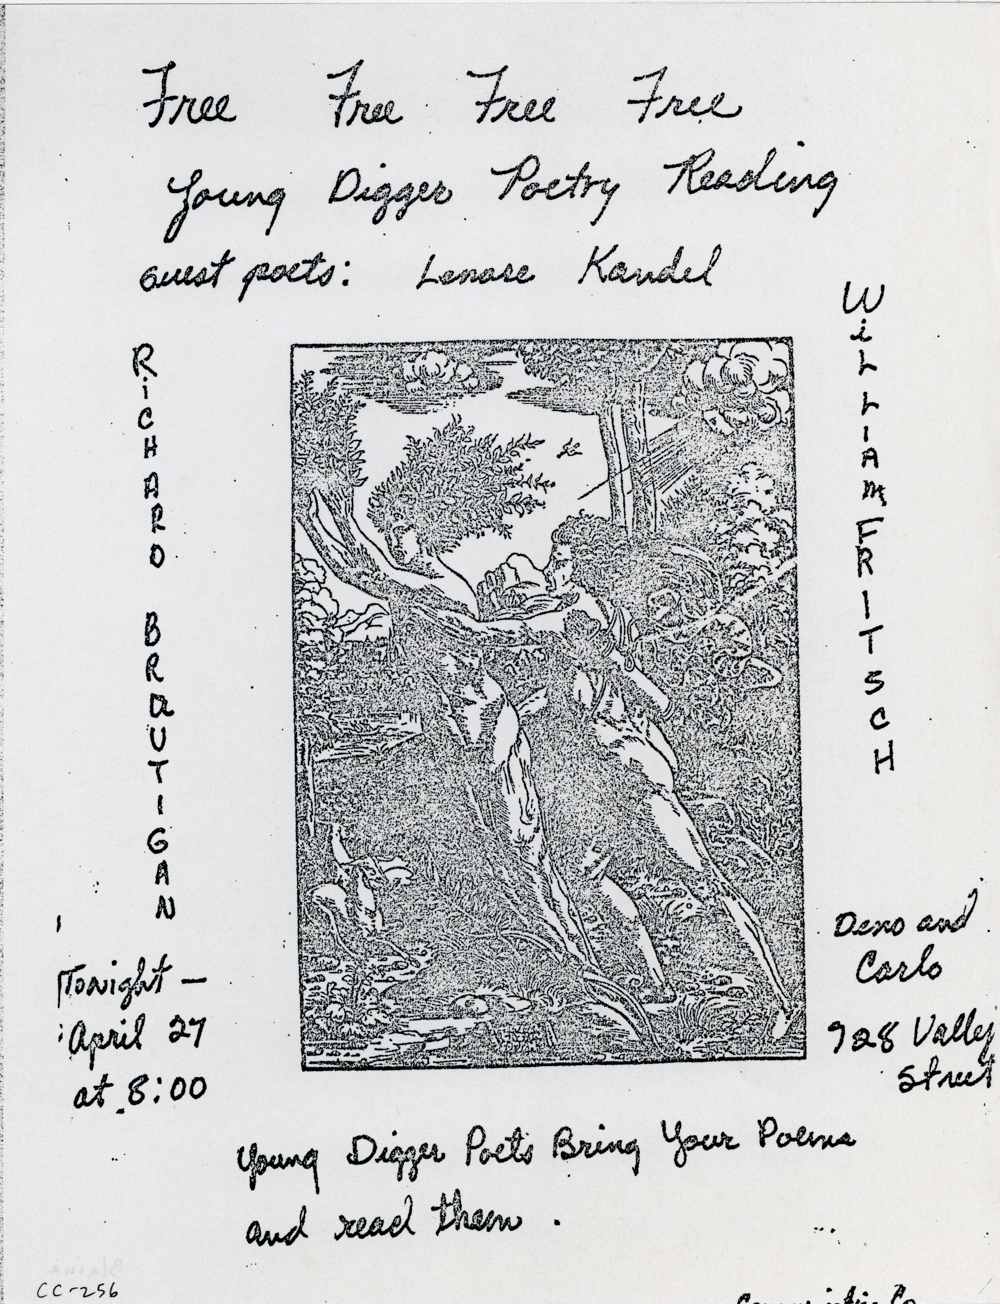 Free Free Free Free
Young Digger Poetry Reading
Guest poets: Lenore Kandel
WiLLIAM FRITSCH
RiCHARD BRAUTIGAN
Tonight —
April 27
at 8:00
Deno and
Carlo
728 Valley
Street
Young Digger Poets Bring Your Poems
and read them.
CC-256